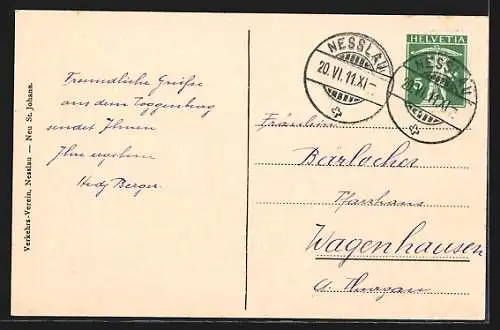 Verkehrs-Verein, Nesslau — Neu St. Johann.
Freundliche Grüsse
aus dem Toggenburg
sendet Ihnen
Ihre ergebene
Hedy Berger.
NESSLAU
20.VI.11.XI-
HELVETIA
NESSLAU
Fräulein
Bärlocher
Pfarrhaus
Wagenhausen
Thurgau